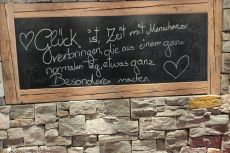 Glück ist Zeit mit Menschen zu
verbringen, die aus einem ganz
normalen Tag etwas ganz
Besonderes machen